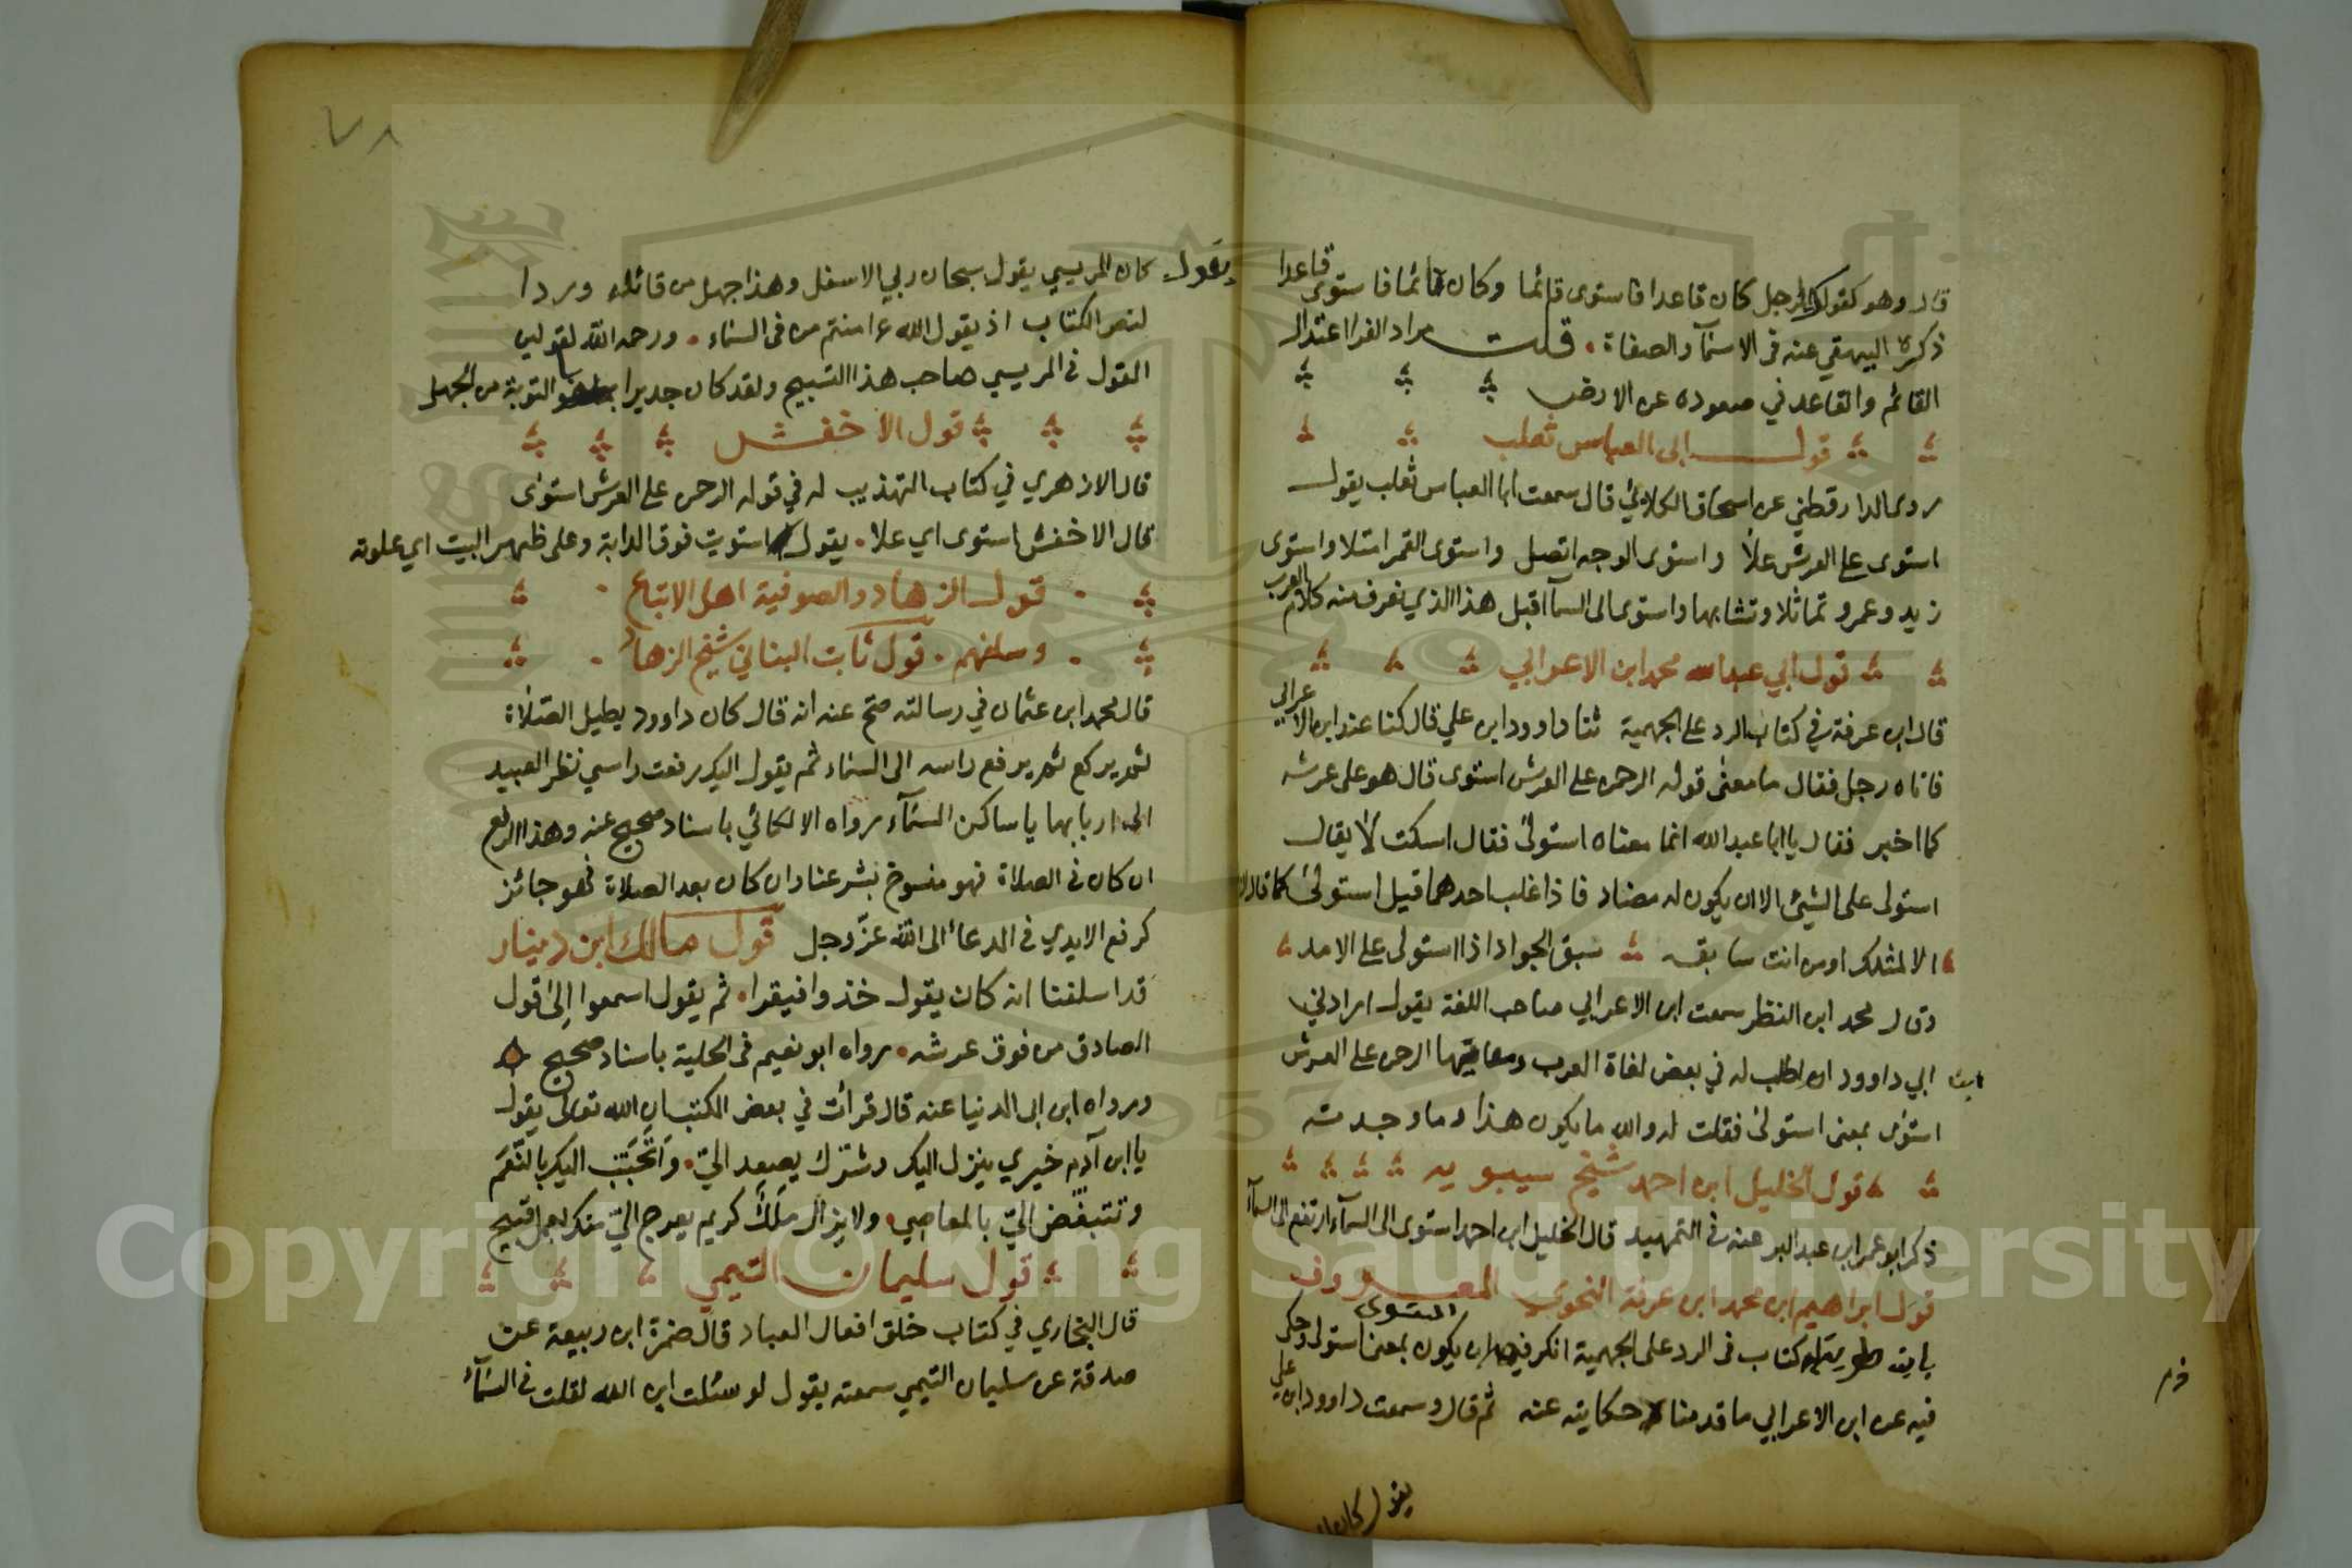 قال وهو كقولك الرجل كان قاعدا فاستوى قائما وكان قائما فاستوى قاعدا
ذكره البيهقي عنه في الاسمآ والصفاة . قلت مراد الفرا اعتدال
القائم والقاعد في صعوده عن الارض
قول ابي العباس ثعلب
روى الدارقطني عن اسحاق الكلابي قال سمعت ابا العباس ثعلب يقول
استوى على العرش علا واستوى الوجه اتصل واستوى القمر امتلا واستوى
زيد وعمرو تماثلا وتشابها واستوى الى السمآ اقبل هذا الذي نعرف منه كلام العرب
قول ابي عبدالله محمد ابن الاعرابي
قال ابن عرفة في كتاب الرد على الجهمية ثنا داوود ابن علي قال كنا عند ابن الاعرابي
فاتاه رجل فقال ما معنى قوله الرحمن على العرش استوى قال هو على عرشه
كما اخبر فقال يا ابا عبدالله انما معناه استولى فقال اسكت لا يقال
استولى على الشيئ الا ان يكون له مضاد فاذا غلب احدهما قيل استولى كما قال
الا لمثلك او من انت سابقه سبق الجواد اذا استولى على الامد
وقال محمد ابن النظر سمعت ابن الاعرابي صاحب اللغة يقول ارادني
ابن ابي داوود ان اطلب له في بعض لغاة العرب ومعانيها الرحمن على العرش
استوى بمعنى استولى فقلت له والله ما يكون هذا وما وجدته
قول الخليل ابن احمد شيخ سيبويه
ذكر ابو عمر ابن عبد البر عنه في التمهيد قال الخليل ابن احمد استوى الى السمآء ارتفع الى السمآء
قول ابراهيم ابن محمد ابن عرفة النحوي المعروف
له كتاب في الرد على الجهمية انكر فيه ان يكون استوى بمعنى استولى وحكى
فيه عن ابن الاعرابي ما قدمنا حكايته عنه ثم قال وسمعت داوود ابن علي
يقول كان
يقول كان المريسي يقول سبحان ربي الاسفل وهذا جهل من قائله ورد ا
لنص الكتاب اذ يقول الله ءامنتم من في السماء . ورحم الله لقولي
القول في المريسي صاحب هذا التسبيح ولقد كان جديرا التوبة من الجهل
قول الاخفش
قال الازهري في كتاب التهذيب له في قوله الرحمن على العرش استوى
قال الاخفش استوى اي علا . يقول استويت فوق الدابة وعلى ظهر البيت اي علوته
قول الزهاد والصوفية اهل الاتباع
وسلفهم . قول ثابت البناني شيخ الزهاد
قال محمد ابن عثمان في رسالته صح عنه انه قال كان داوود يطيل الصلاة
ثم يركع ثم يرفع راسه الى السماء ثم يقول اليك رفعت راسي نظر العبيد
الى اربابها يا ساكن السمآء رواه الالكائي باسناد صحيح عنه وهذا الرفع
ان كان في الصلاة فهو منسوخ بشرعنا وان كان بعد الصلاة فهو جائز
كرفع الايدي في الدعاء الى الله عزّ وجل قول مالك ابن دينار
قد اسلفنا انه كان يقول خذوا فيقرا . ثم يقول اسمعوا إلى قول
الصادق من فوق عرشه . رواه ابو نعيم في الحلية باسناد صحيح
ورواه ابن ابي الدنيا عنه قال قرأت في بعض الكتب ان الله تعالى يقول
يا ابن آدم خيري ينزل اليك وشرك يصعد اليّ . وَأتحَبَّبُ اليك بالنّعَم
وتتبغّض اليّ بالمعاصي . ولا يزال مَلَكٌ كريم يعرج اليّ منك بعمل قبيح
قول سليمان التيمي
قال البخاري في كتاب خلق افعال العباد قال ضمرة ابن ربيعة عن
صدقة عن سليمان التيمي سمعته يقول لو سئلت اين الله لقلت في السمآء
٧٨
Copyright © King Saud University